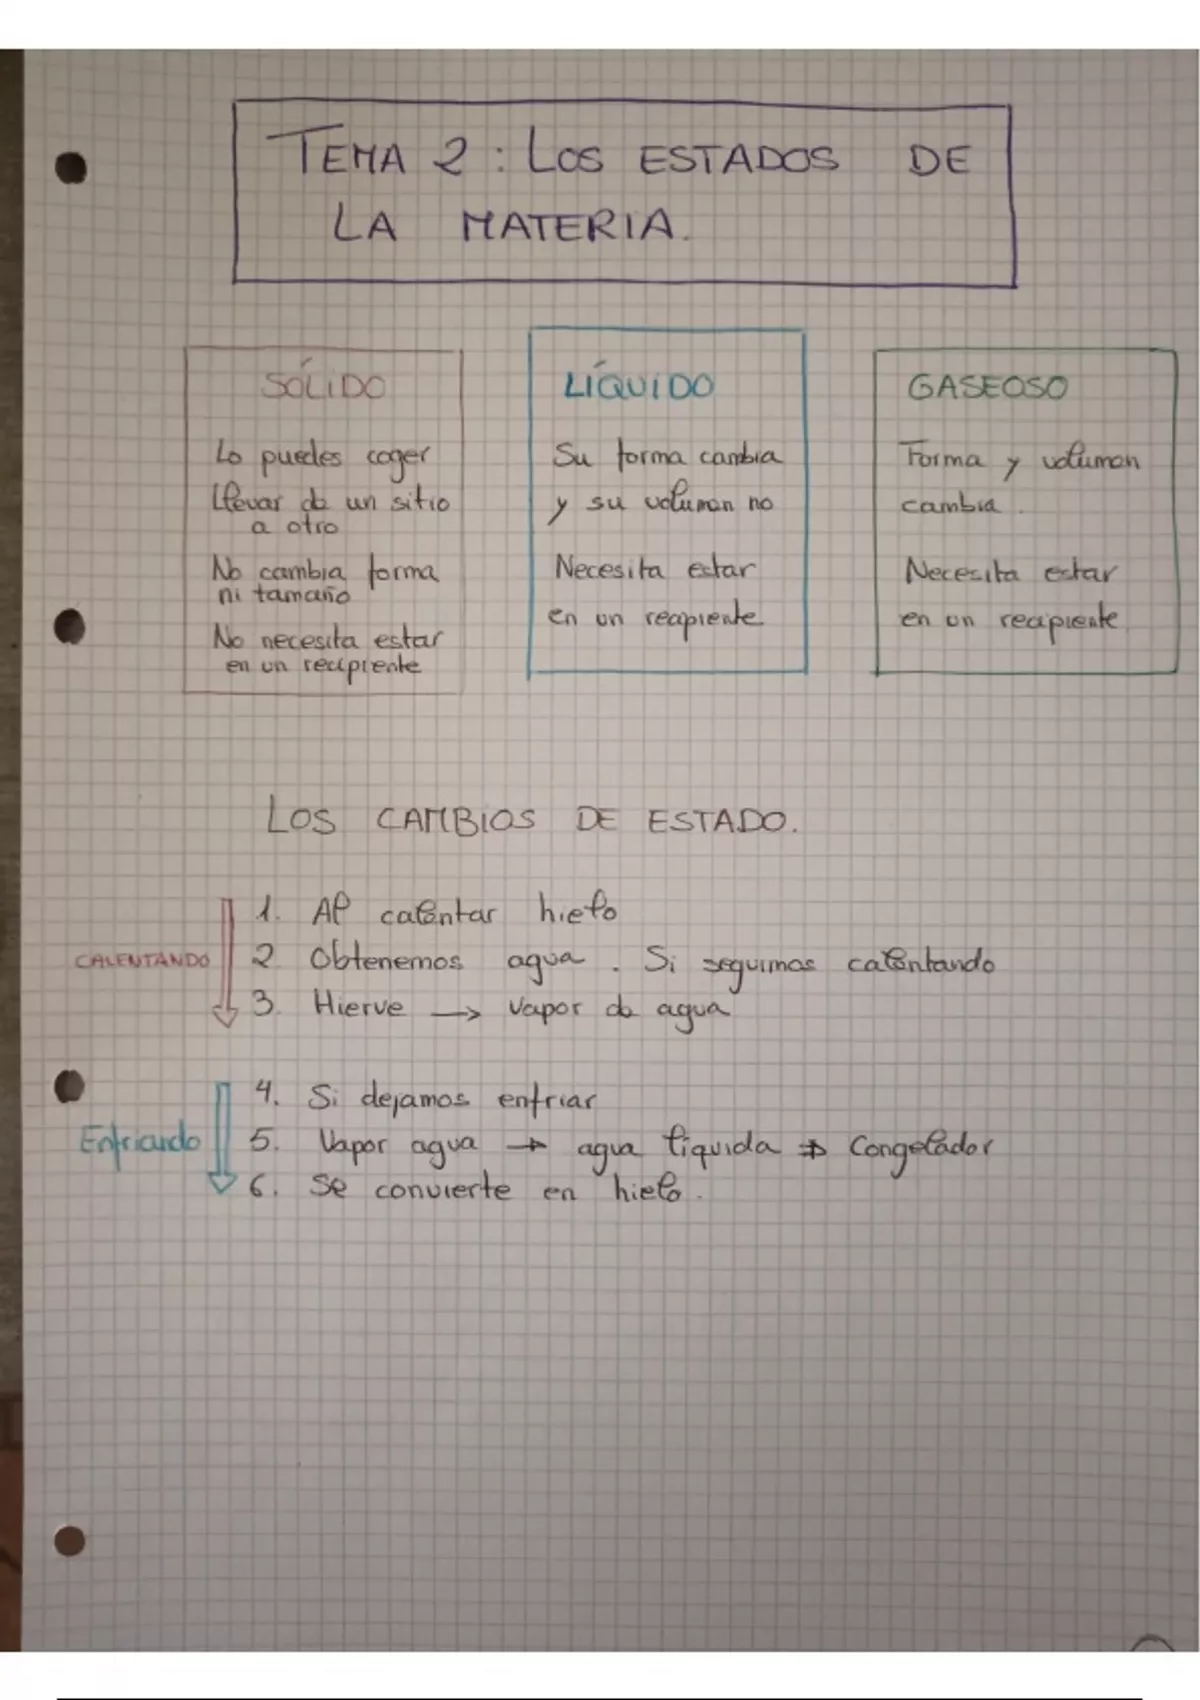 TEMA 2 : LOS ESTADOS DE
LA MATERIA.
SÓLIDO
Lo puedes coger
Llevar de un sitio
a otro
No cambia forma
ni tamaño
No necesita estar
en un recipiente
LÍQUIDO
Su forma cambia
y su volumen no
Necesita estar
en un recipiente
GASEOSO
Forma y volumen
cambia.
Necesita estar
en un recipiente
LOS CAMBIOS DE ESTADO.
CALENTANDO
1. Al calentar hielo
2. Obtenemos agua. Si seguimos calentando
3. Hierve → vapor de agua
Enfriando
4. Si dejamos enfriar
5. Vapor agua → agua líquida ⇒ Congelador
6. Se convierte en hielo.